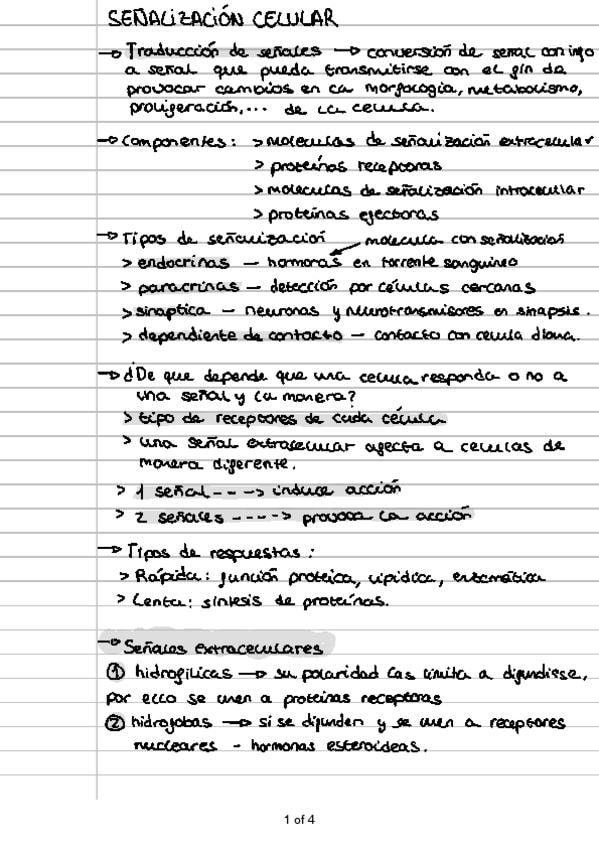 SEÑALIZACIÓN CELULAR
→ Traducción de señales → conversión de señal con info
a señal que pueda transmitirse con el fin de
provocar cambios en la morfología, metabolismo,
proliferación,... de la célula.
→ Componentes: > moleculas de señalización extracelular
> proteínas receptoras
> moleculas de señalización intracelular
> proteínas efectoras
→ Tipos de señalización molecula con señalización
> endocrinas – hormonas en torrente sanguíneo
> paracrinas – detección por células cercanas
> sinaptica – neuronas y neurotransmisores en sinapsis.
> dependiente de contacto – contacto con celula diana.
→ ¿De que depende que una celula responda o no a
una señal y la manera?
> tipo de receptores de cada célula
> una señal extracelular afecta a celulas de
manera diferente.
> 1 señal ---> induce acción
> 2 señales ----> provoca la acción
→ Tipos de respuestas:
> Rápida: función proteica, lipidica, enzemática
> Lenta: síntesis de proteínas.
→ Señales extracelulares
① hidrofílicas → su polaridad las limita a difundirse,
por ello se unen a proteínas receptoras
② hidrofobas → si se difunden y se unen a receptores
nucleares – hormonas esteroideas.
1 of 4